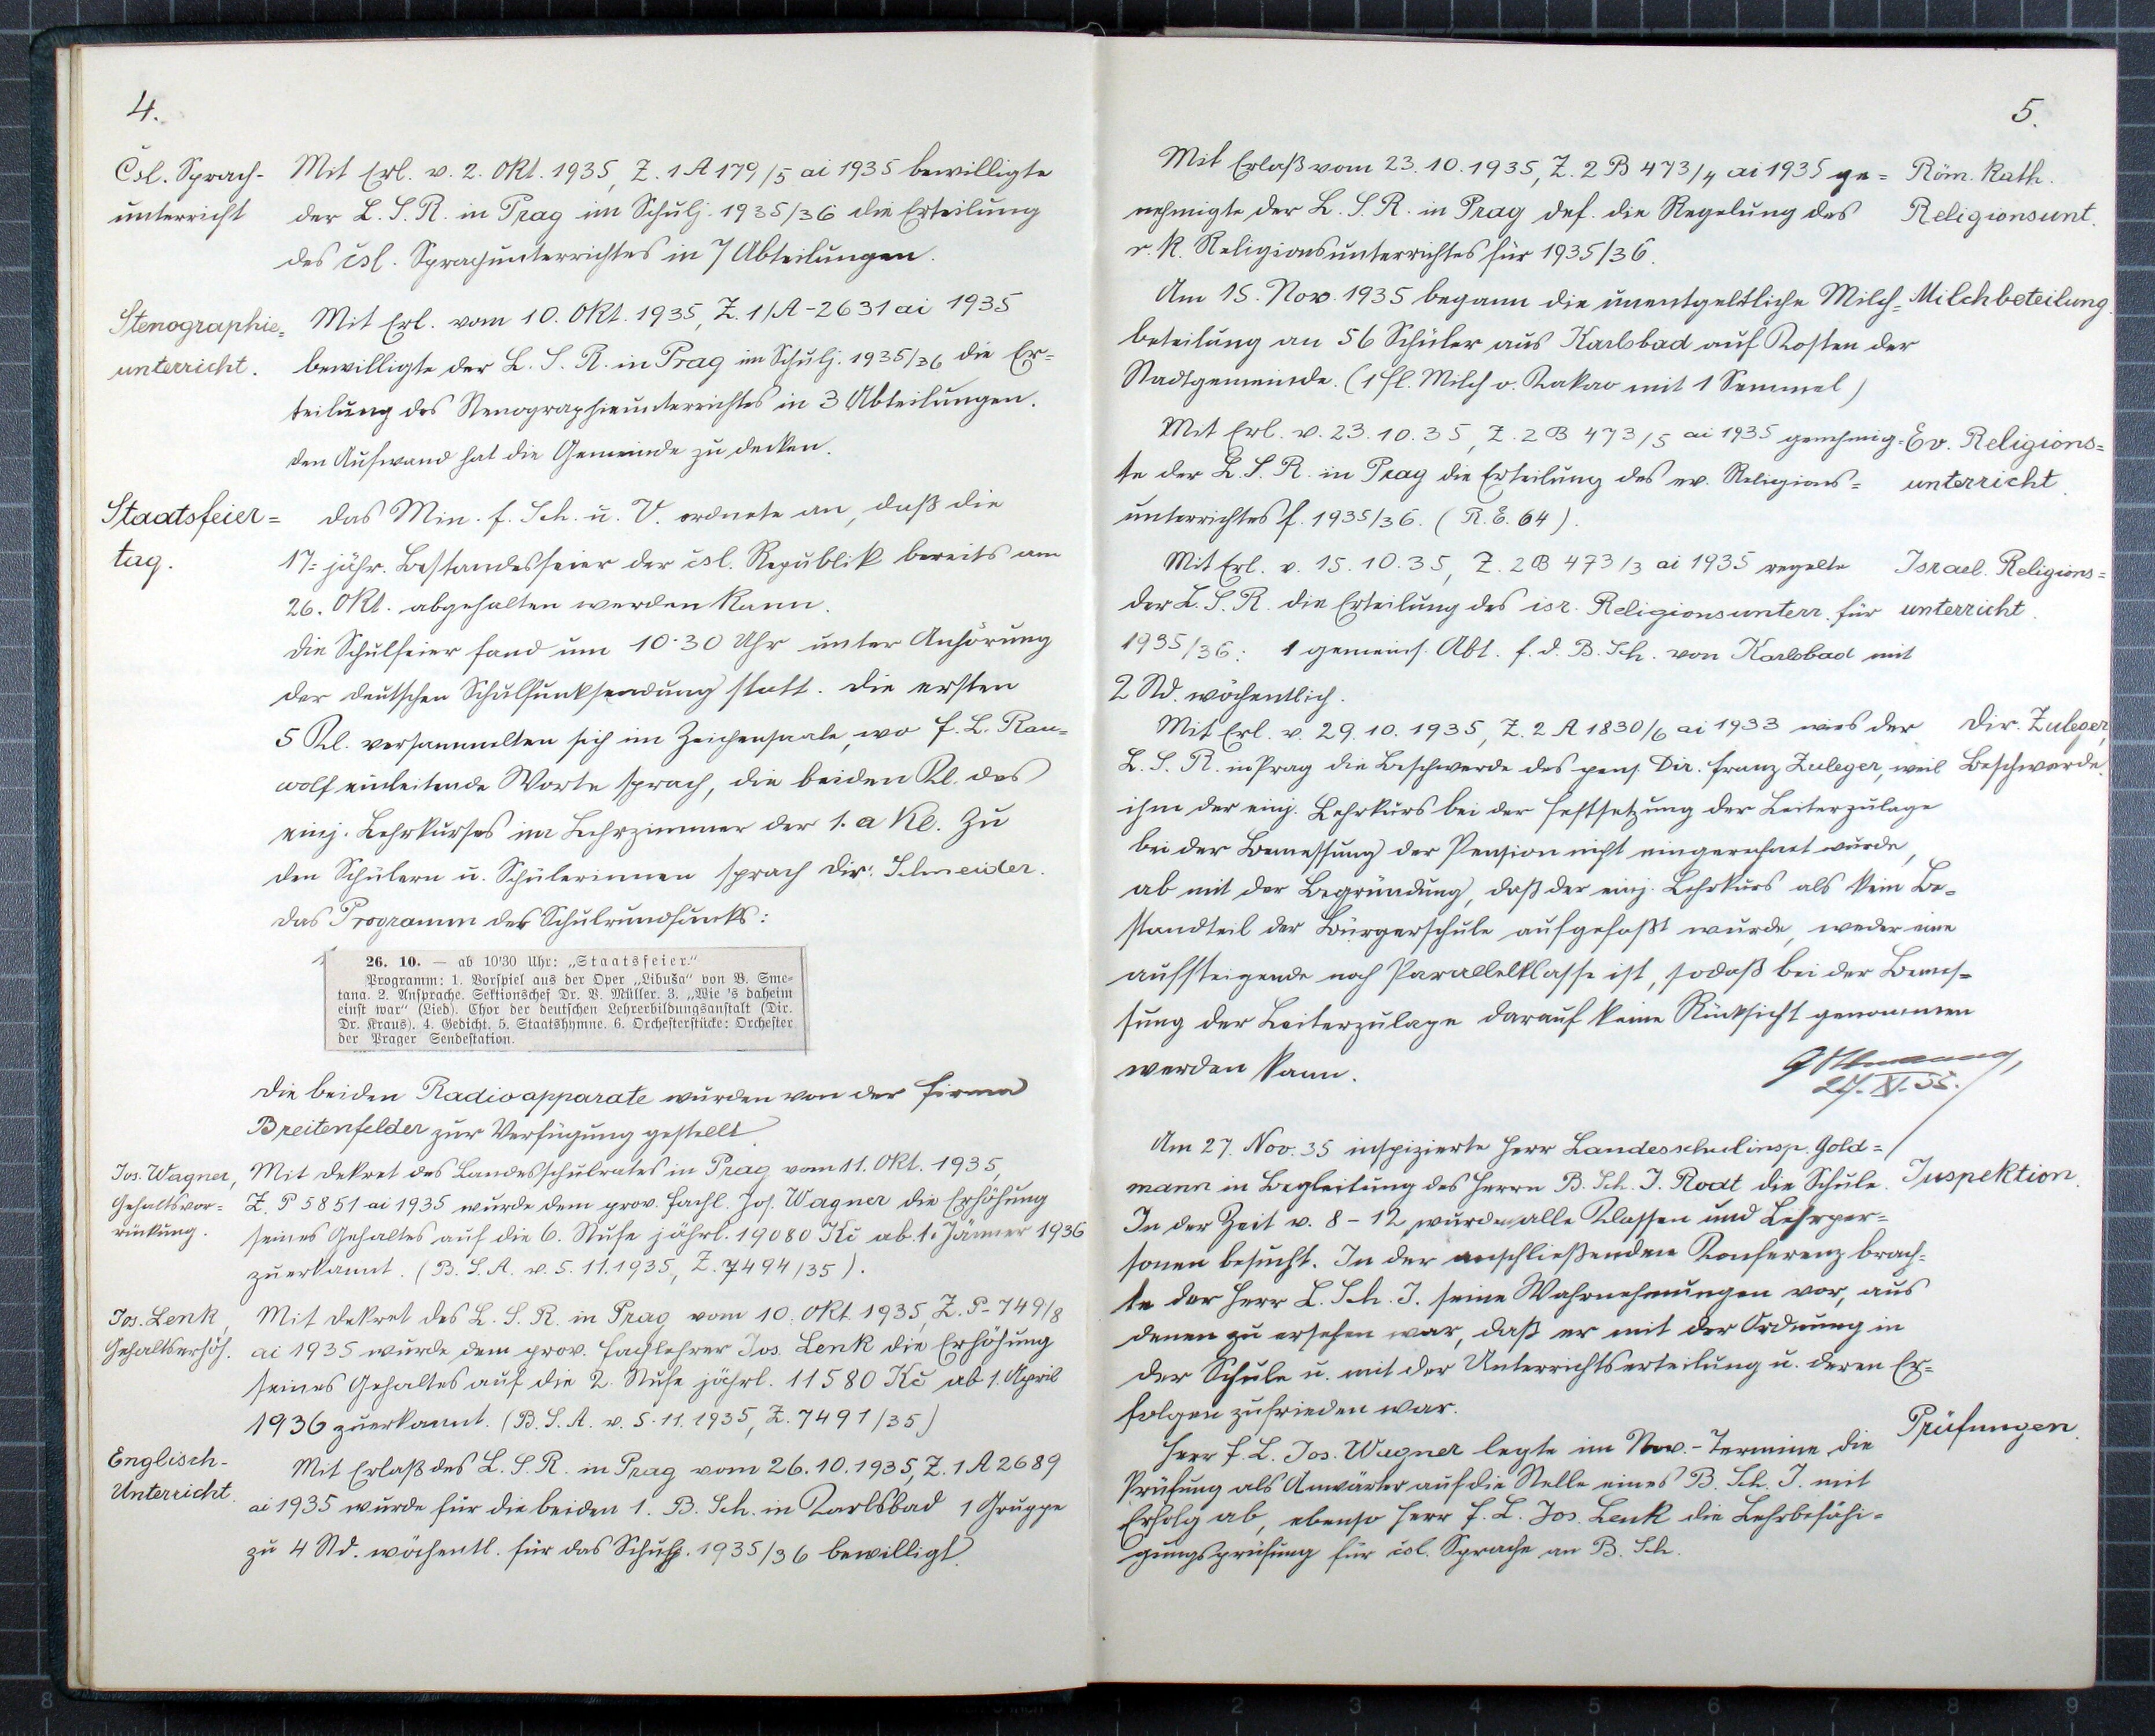 4.
Čsl. Sprach-
unterricht
Mit Erl. v. 2. Okt. 1935, Z. 1 A 179/5 ai 1935 bewilligte
der L. S. R. in Prag im Schulj. 1935/36 die Erteilung
des čsl. Sprachunterrichtes in 7 Abteilungen.
Stenographie=
unterricht.
Mit Erl. vom 10. Okt. 1935, Z. 1/A-2631 ai 1935
bewilligte der L. S. R. in Prag im Schulj. 1935/36 die Er=
teilung des Stenographieunterrichtes in 3 Abteilungen.
Den Aufwand hat die Gemeinde zu decken.
Staatsfeier=
tag.
Das Min. f. Sch. u. V. ordnete an, daß die
17=jähr. Bestandesfeier der čsl. Republik bereits am
26. Okt. abgehalten werden kann.
Die Schulfeier fand um 10·30 Uhr unter Anhörung
der deutschen Schulfunksendung statt. Die ersten
5 Kl. versammelten sich im Zeichensaale, wo F. L. Rau=
wolf einleitende Worte sprach, die beiden Kl. des
einj. Lehrkurses im Lehrzimmer der 1. a Kl. Zu
den Schülern u. Schülerinnen sprach Dir. Schneider.
Das Programm des Schulrundfunks:
26. 10. — ab 10'30 Uhr: „Staatsfeier."
Programm: 1. Vorspiel aus der Oper „Libuša" von B. Sme-
tana. 2. Ansprache. Sektionschef Dr. V. Müller. 3. „Wie 's daheim
einst war" (Lied). Chor der deutschen Lehrerbildungsanstalt (Dir.
Dr. Kraus). 4. Gedicht. 5. Staatshymne. 6. Orchesterstücke: Orchester
der Prager Sendestation.
Die beiden Radioapparate wurden von der Firma
Breitenfelder zur Verfügung gestellt.
Jos. Wagner,
Gehaltsvor=
rückung.
Mit Dekret des Landesschulrates in Prag vom 11. Okt. 1935,
Z. P 5851 ai 1935 wurde dem prov. Fachl. Jos. Wagner die Erhöhung
seines Gehaltes auf die 6. Stufe jährl. 19080 Kč ab 1. Jänner 1936
zuerkannt. (B. S. A. v. 5. 11. 1935, Z. 7494/35).
Jos. Lenk,
Gehaltserhöh.
Mit Dekret des L. S. R. in Prag vom 10. Okt. 1935, Z. P-749/8
ai 1935 wurde dem prov. Fachlehrer Jos. Lenk die Erhöhung
seines Gehaltes auf die 2. Stufe jährl. 11580 Kč ab 1. April
1936 zuerkannt. (B. S. A. v. 5. 11. 1935, Z. 7491/35)
Englisch-
Unterricht.
Mit Erlaß des L. S. R. in Prag vom 26. 10. 1935, Z. 1 A 2689
ai 1935 wurde für die beiden 1. B. Sch. in Karlsbad 1 Gruppe
zu 4 Std. wöchentl. für das Schulj. 1935/36 bewilligt.
5.
Mit Erlaß vom 23. 10. 1935, Z. 2 B 473/4 ai 1935 ge=
nehmigte der L. S. R. in Prag def. die Regelung des
r. k. Religionsunterrichtes für 1935/36.
Röm. kath.
Religionsunt.
Am 15. Nov. 1935 begann die unentgeltliche Milch=
beteilung an 56 Schüler aus Karlsbad auf Kosten der
Stadtgemeinde. (1 Fl. Milch o. Kakao mit 1 Semmel)
Milchbeteilung.
Mit Erl. v. 23. 10. 35, Z. 2 B 473/5 ai 1935 genehmig=
te der L. S. R. in Prag die Erteilung des ev. Religions=
unterrichtes f. 1935/36. (R. E. 64).
Ev. Religions=
unterricht.
Mit Erl. v. 15. 10. 35, Z. 2 B 473/3 ai 1935 regelte
der L. S. R. die Erteilung des isr. Religionsunterr. für
1935/36: 1 gemeins. Abt. f. d. B. Sch. von Karlsbad mit
2 Std. wöchentlich.
Israel. Religions=
unterricht.
Mit Erl. v. 29. 10. 1935, Z. 2 A 1830/6 ai 1933 wies der
L. S. R. in Prag die Beschwerde des pens. Dir. Franz Zuleger, weil
ihm der einj. Lehrkurs bei der Festsetzung der Leiterzulage
bei der Bemessung der Pension nicht eingerechnet wurde,
ab mit der Begründung, daß der einj. Lehrkurs als kein Be=
standteil der Bürgerschule aufgefaßt wurde, weder eine
aufsteigende noch Parallelklasse ist, sodaß bei der Bemes=
sung der Leiterzulage darauf keine Rücksicht genommen
werden kann.
Dir. Zuleger,
Beschwerde.
27. XI. 35.
Am 27. Nov. 35 inspizierte Herr Landesschulinsp. Gold=
mann in Begleitung des Herrn B. Sch. I. Rodt die Schule.
In der Zeit v. 8-12 wurden alle Klassen und Lehrper=
sonen besucht. In der anschließenden Konferenz brach=
te der Herr L. Sch. I. seine Wahrnehmungen vor, aus
denen zu ersehen war, daß er mit der Ordnung in
der Schule u. mit der Unterrichtserteilung u. deren Er=
folgen zufrieden war.
Inspektion.
Herr F. L. Jos. Wagner legte im Nov.-Termine die
Prüfung als Anwärter auf die Stelle eines B. Sch. I. mit
Erfolg ab, ebenso Herr F. L. Jos. Lenk die Lehrbefähi=
gungsprüfung für čsl. Sprache an B. Sch.
Prüfungen.
8
1 2 3 4 5 6 7 8 9